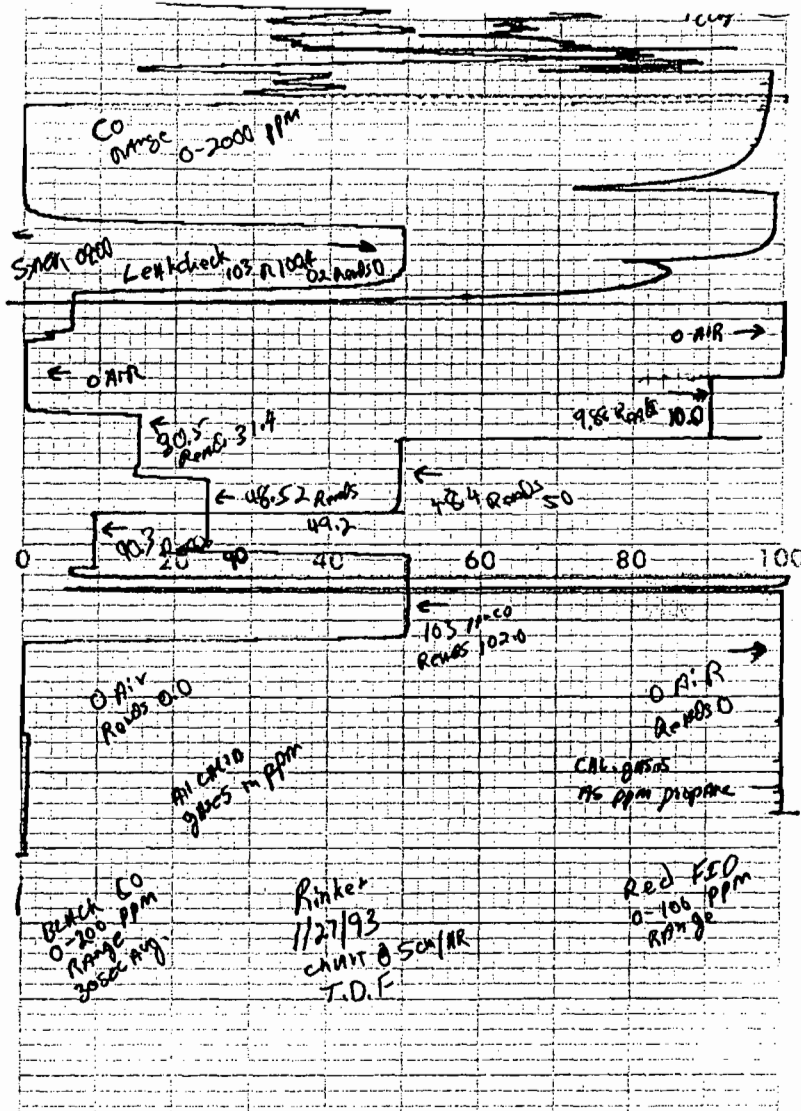 CO
RANge 0-2000 ppm
0200
Leakcheck 103 R 100.4
O2 Reads 0
0 AIR →
← 0 AIR
9.86 Reads 10.0
30.5
Reads 31.4
← 48.52 Reads
49.2
48.4 Reads
50
90.3 Reads
90
0 20 40 60 80 100
103 ppm CO
Reads 102.0
0 Air
Reads 0.0
0 AiR
Reads 0
All CALIB
gASES in ppm
CAL. gASES
AS ppm propane
BLACK CO
0-200 ppm
RANge
30SEC Avg.
Rinker
1/27/93
CHART @ 5cm/HR
T.D.F
Red FID
0-100 ppm
RANge